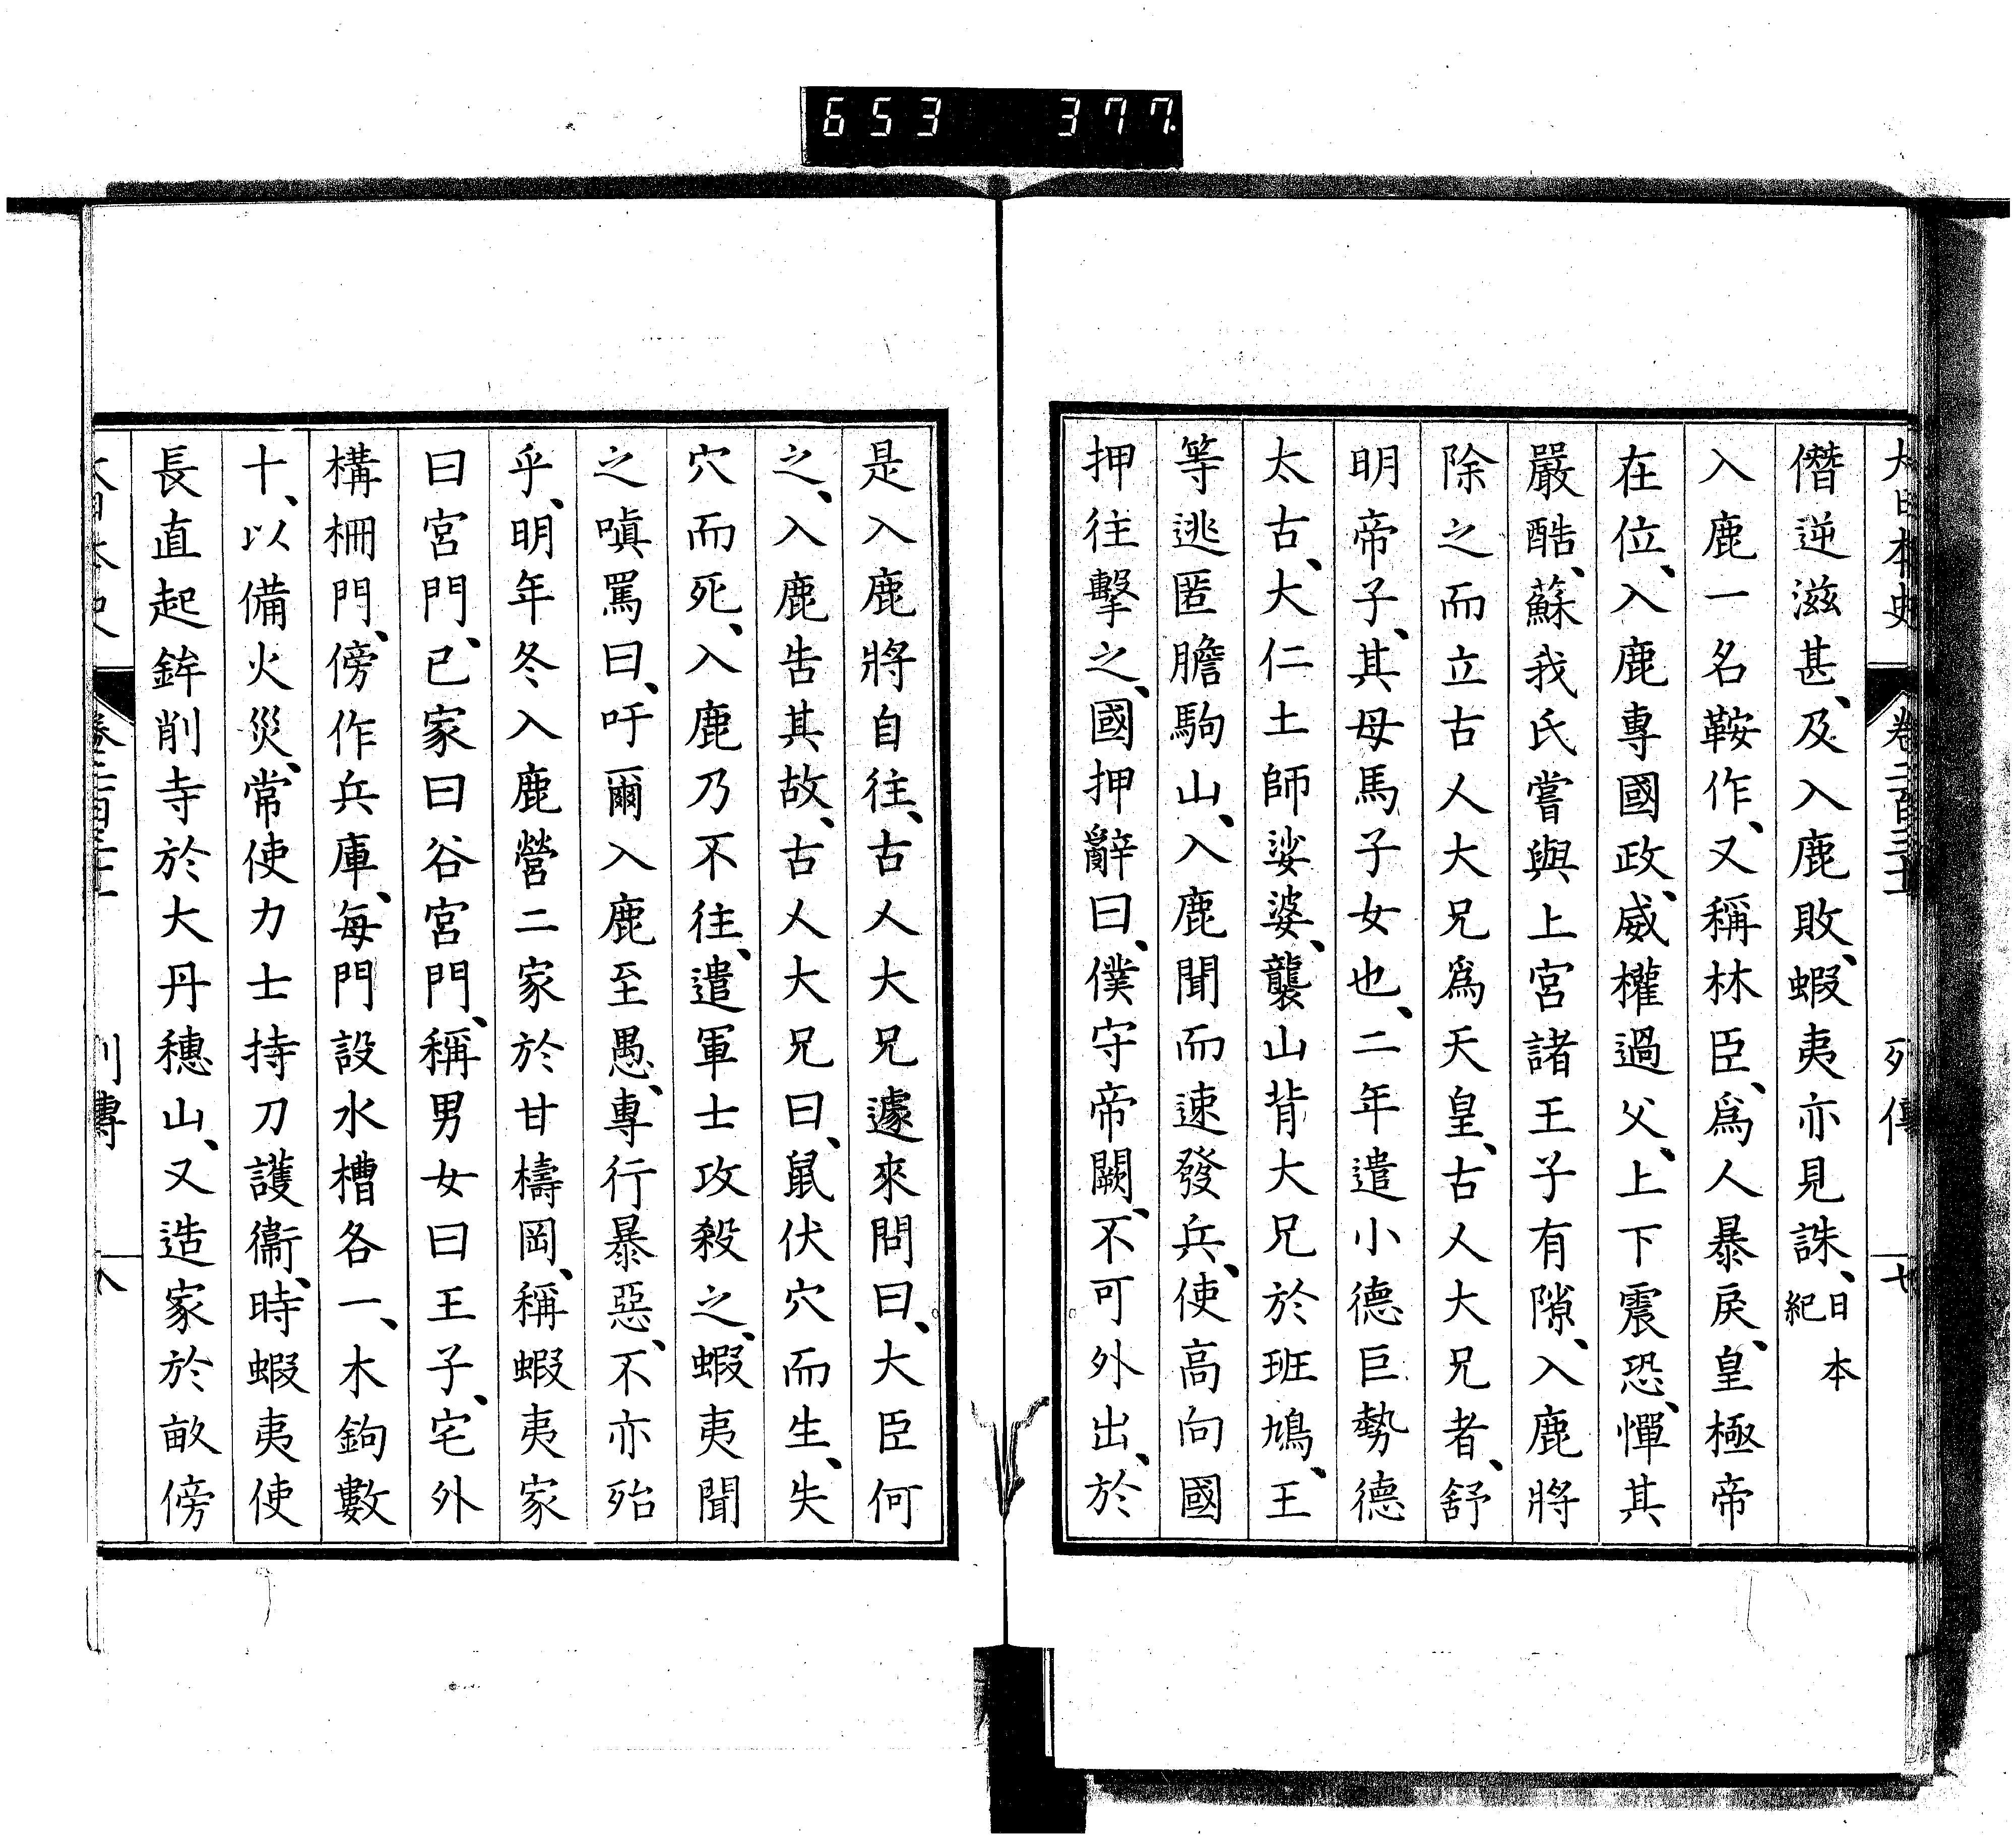 653 377
大日本史 卷二百三十 列傳 七
僭逆滋甚、及入鹿敗、蝦夷亦見誅、日本紀
入鹿一名鞍作、又稱林臣、爲人暴戾、皇極帝
在位、入鹿專國政、威權過父、上下震恐、憚其
嚴酷、蘇我氏嘗與上宮諸王子有隙、入鹿將
除之而立古人大兄爲天皇、古人大兄者、舒
明帝子、其母馬子女也、二年遣小德巨勢德
太古、大仁土師娑婆、襲山背大兄於班鳩、王
等逃匿膽駒山、入鹿聞而速發兵、使高向國
押往擊之、國押辭曰、僕守帝闕、不可外出、於
是入鹿將自往、古人大兄遽來問曰、大臣何
之、入鹿告其故、古人大兄曰、鼠伏穴而生、失
穴而死、入鹿乃不往、遣軍士攻殺之、蝦夷聞
之嗔罵曰、吁爾入鹿至愚、專行暴惡、不亦殆
乎、明年冬入鹿營二家於甘檮岡、稱蝦夷家
曰宮門、已家曰谷宮門、稱男女曰王子、宅外
構柵門、傍作兵庫、每門設水槽各一、木鉤數
十、以備火災、常使力士持刀護衞、時蝦夷使
長直起鉾削寺於大丹穗山、又造家於畝傍
大日本史 列傳 八